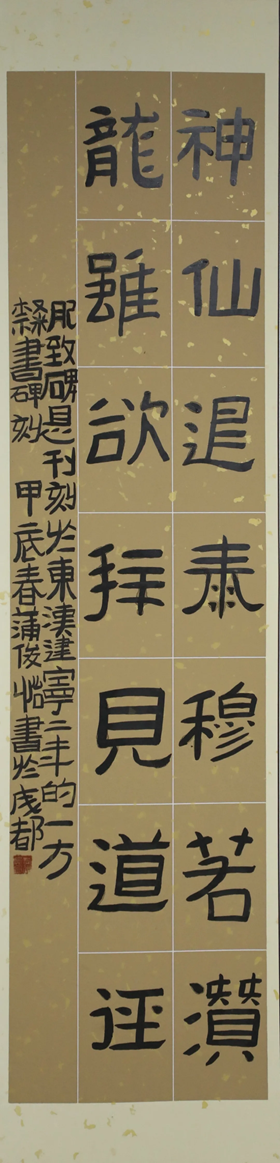 神仙退泰穆若潛
龍雖欲拜見道徑
肥致碑是刊刻於東漢建寧二年的一方
隸書碑刻 甲辰春蒲俊怡書於成都